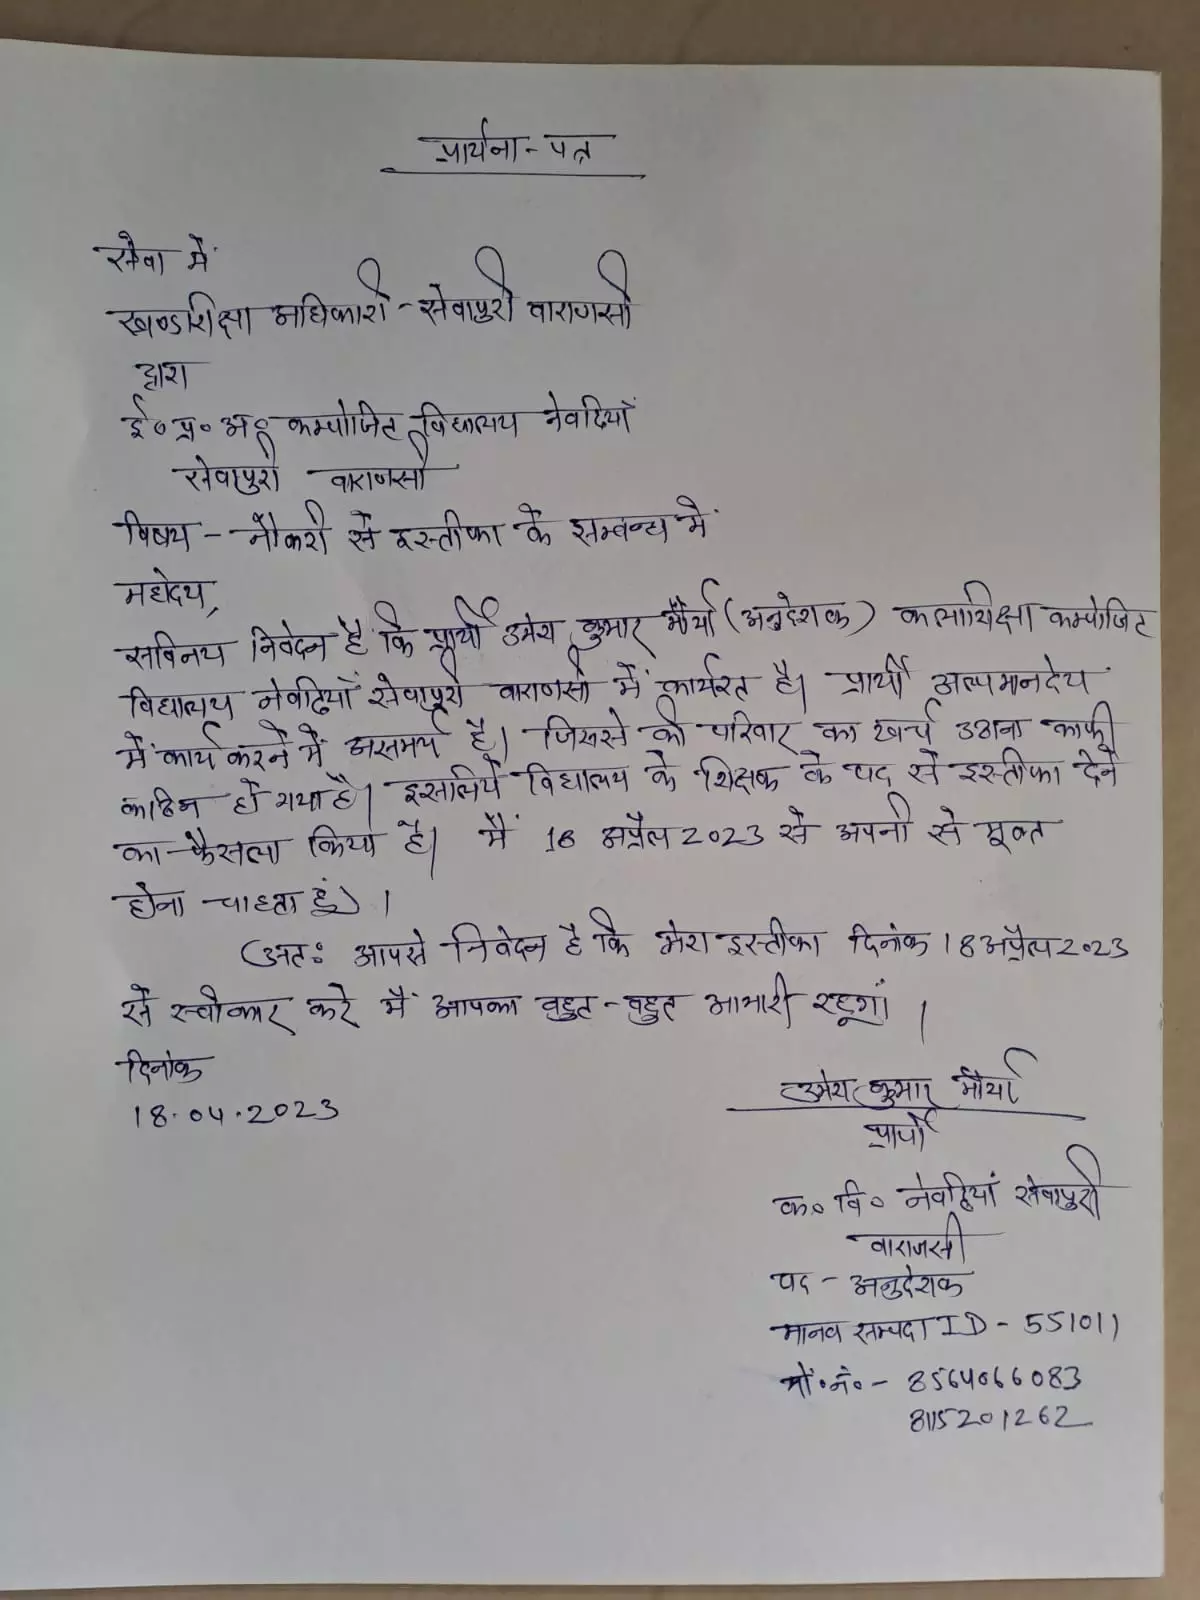 प्रार्थना-पत्र
सेवा में
खण्ड शिक्षा अधिकारी - सेवापुरी वाराणसी
द्वारा
ई० प्र० अ० कम्पोजिट विद्यालय नेवढियाँ
सेवापुरी वाराणसी
विषय - नौकरी से इस्तीफा के सम्बन्ध में
महोदय,
सविनय निवेदन है कि प्रार्थी उमेश कुमार मौर्या (अनुदेशक) कलाशिक्षा कम्पोजिट
विद्यालय नेवढियाँ सेवापुरी वाराणसी में कार्यरत है। प्रार्थी अल्पमानदेय
में कार्य करने में असमर्थ है। जिससे की परिवार का खर्च उठाना काफी
कठिन हो गया है। इसलिये विद्यालय के शिक्षक के पद से इस्तीफा देने
का फैसला किया है। मैं 18 अप्रैल 2023 से अपनी से मूक्त
होना चाहता हूं।
अतः आपसे निवेदन है कि मेरा इस्तीफा दिनांक 18 अप्रैल 2023
से स्वीकार करे मैं आपका बहुत-बहुत आभारी रहूगां।
दिनांक
18.04.2023
उमेश कुमार मौर्या
प्रार्थी
क० वि० नेवढियां सेवापुरी
वाराणसी
पद - अनुदेशक
मानव सम्पदा ID - 551011
मो.नं०- 8564066083
8115201262